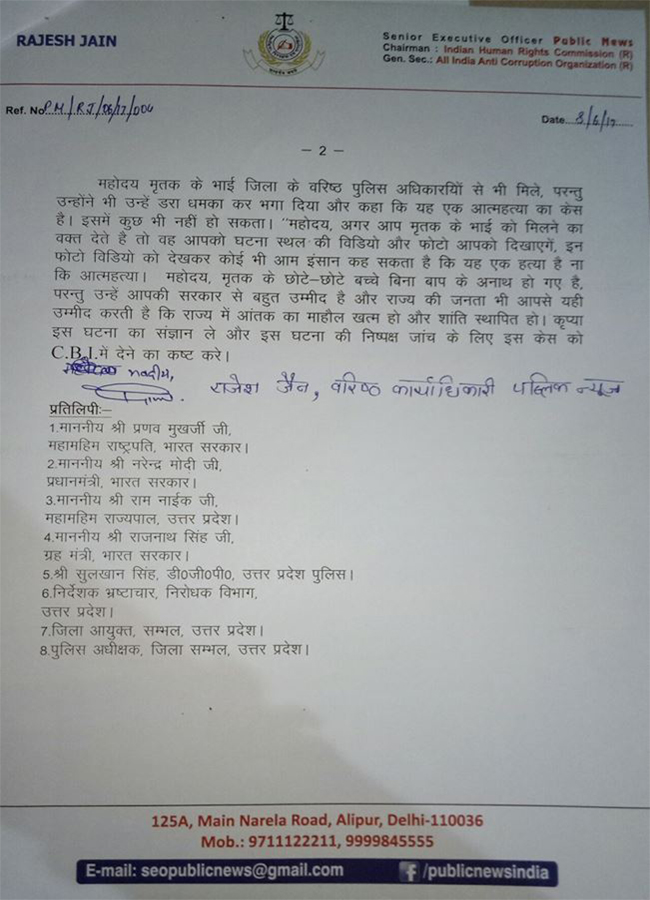 RAJESH JAIN
Senior Executive Officer Public News
Chairman : Indian Human Rights Commission (R)
Gen. Sec.: All India Anti Corruption Organization (R)
Ref. No. P.M/RJ/06/17/004
Date 8/6/17
– 2 –
महोदय मृतक के भाई जिला के वरिष्ठ पुलिस अधिकारयिों से भी मिले, परन्तु
उन्होंने भी उन्हें डरा धमका कर भगा दिया और कहा कि यह एक आत्महत्या का केस
है। इसमें कुछ भी नहीं हो सकता। "महोदय, अगर आप मृतक के भाई को मिलने का
वक्त देते है तो वह आपको घटना स्थल की विडियो और फोटो आपको दिखाएगें, इन
फोटो विडियो को देखकर कोई भी आम इंसान कह सकता है कि यह एक हत्या है ना
कि आत्महत्या। महोदय, मृतक के छोटे–छोटे बच्चे बिना बाप के अनाथ हो गए है,
परन्तु उन्हें आपकी सरकार से बहुत उम्मीद है और राज्य की जनता भी आपसे यही
उम्मीद करती है कि राज्य में आंतक का माहौल खत्म हो और शांति स्थापित हो। कृप्या
इस घटना का संज्ञान ले और इस घटना की निष्पक्ष जांच के लिए इस केस को
C.B.I.में देने का कष्ट करे।
राजेश जैन, वरिष्ठ कार्याधिकारी पब्लिक न्यूज
प्रतिलिपीः–
1.माननीय श्री प्रणव मुखर्जी जी,
महामहिम राष्ट्रपति, भारत सरकार।
2.माननीय श्री नरेन्द्र मोदी जी,
प्रधानमंत्री, भारत सरकार।
3.माननीय श्री राम नाईक जी,
महामहिम राज्यपाल, उत्तर प्रदेश।
4.माननीय श्री राजनाथ सिंह जी,
ग्रह मंत्री, भारत सरकार।
5.श्री सुलखान सिंह, डी0जी0पी0, उत्तर प्रदेश पुलिस।
6.निर्देशक भ्रष्टाचार, निरोधक विभाग,
उत्तर प्रदेश।
7.जिला आयुक्त, सम्भल, उत्तर प्रदेश।
8.पुलिस अधीक्षक, जिला सम्भल, उत्तर प्रदेश।
125A, Main Narela Road, Alipur, Delhi-110036
Mob.: 9711122211, 9999845555
E-mail: seopublicnews@gmail.com
f /publicnewsindia